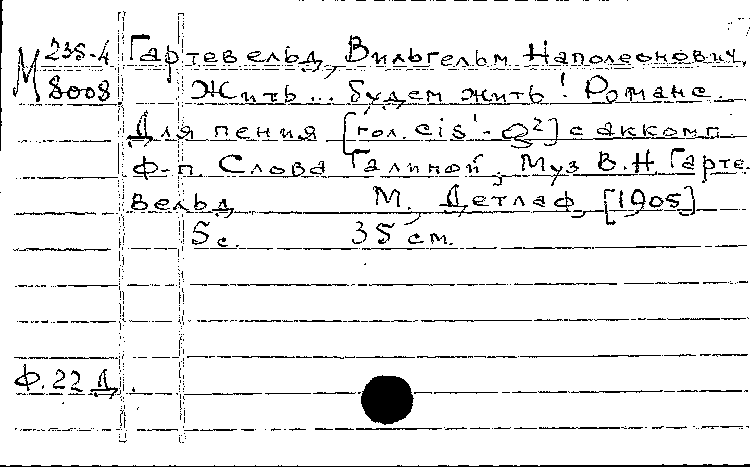 М 238-4 Гартевельд, Вильгельм Наполеонович.
8008 Жить... будем жить! Романс.
Для пения [гол. cis¹-a²] с аккомп.
ф-п. Слова Галиной. Муз В.Н Гарте-
вельд М., Детлаф, [1905]
5 с. 35 см.
Ф. 22 Д.